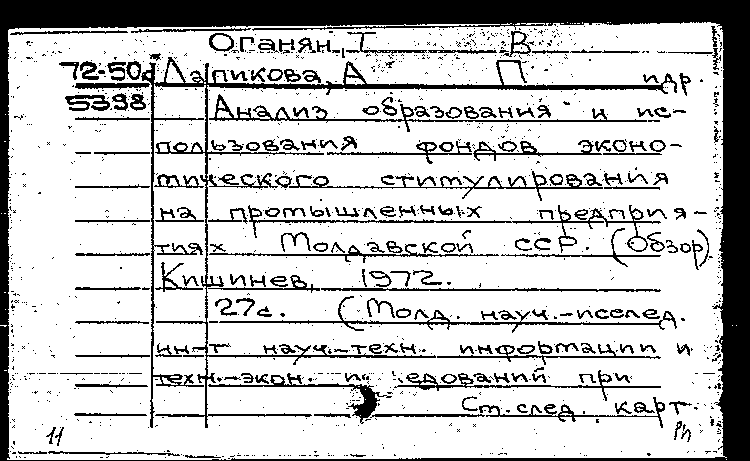 Оганян, Т В
72-50д Лапикова, А П идр.
5398 Анализ образования и ис-
пользования фондов эконо-
мического стимулирования
на промышленных предприя-
тиях Молдавской ССР. (Обзор).
Кишинев, 1972.
27с. (Молд. науч.-исслед.
ин-т науч.-техн. информации и
техн.-экон. и едований при
См. след. карт.
11